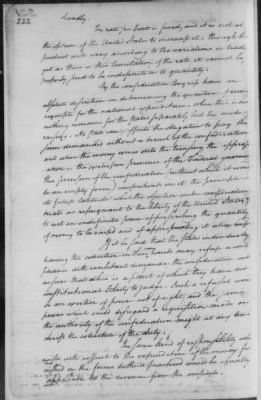 222
Secondly.
The rate, in Court is fixed, and it is not at
the option of the United States to increase it. Though the
product will vary according to the variations in trade
yet as there is this limitation of the rate it cannot be
properly said to be indefinite as to quantity.
By the confederation Congress have an
absolute discretion in determining the quantum of revenue
requisite for the national expenditure. When this is done
nothing remains for the States separately but the mode of
raising. No State can dispute the obligation to pay the
sum demanded without a breach of the confederation
and when the money comes into the treasury, the appropri-
ation is the exclusive province of the Federal government
This provision of the confederation (without which it would
be an empty form) comprehends in it the principle in
its fullest latitude which the objection under consideration
treats as repugnant to the liberty of the United States
to wit an indefinite power of prescribing the quantity
of money to be raised and of appropriating it when raised
If it be said that the States individually
having the collection in their hands may refuse a com-
pliance with exorbitant demands the confederation will
answer that this is a point of which they have no
constitutional liberty to judge. Such a refusal would
be an exertion of power not of right and the same
power which could disregard a requisition made on
the authority of the confederation might at any time
arrest the collection of the duty.
The same kind of responsibility which
exists with respect to the expenditure of the money fur-
nished in the forms hitherto practiced would be equally
applicable to the revenue from the imposts.